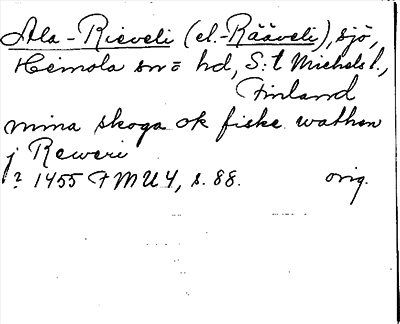 Ala-Rieveli (el. Rääveli), sjö,
Heinola sn o hd, S:t Michels l.,
Finland
mina skoga ok fiske wathen
j Reweri
? 1455 FMU 4, s. 88. orig.